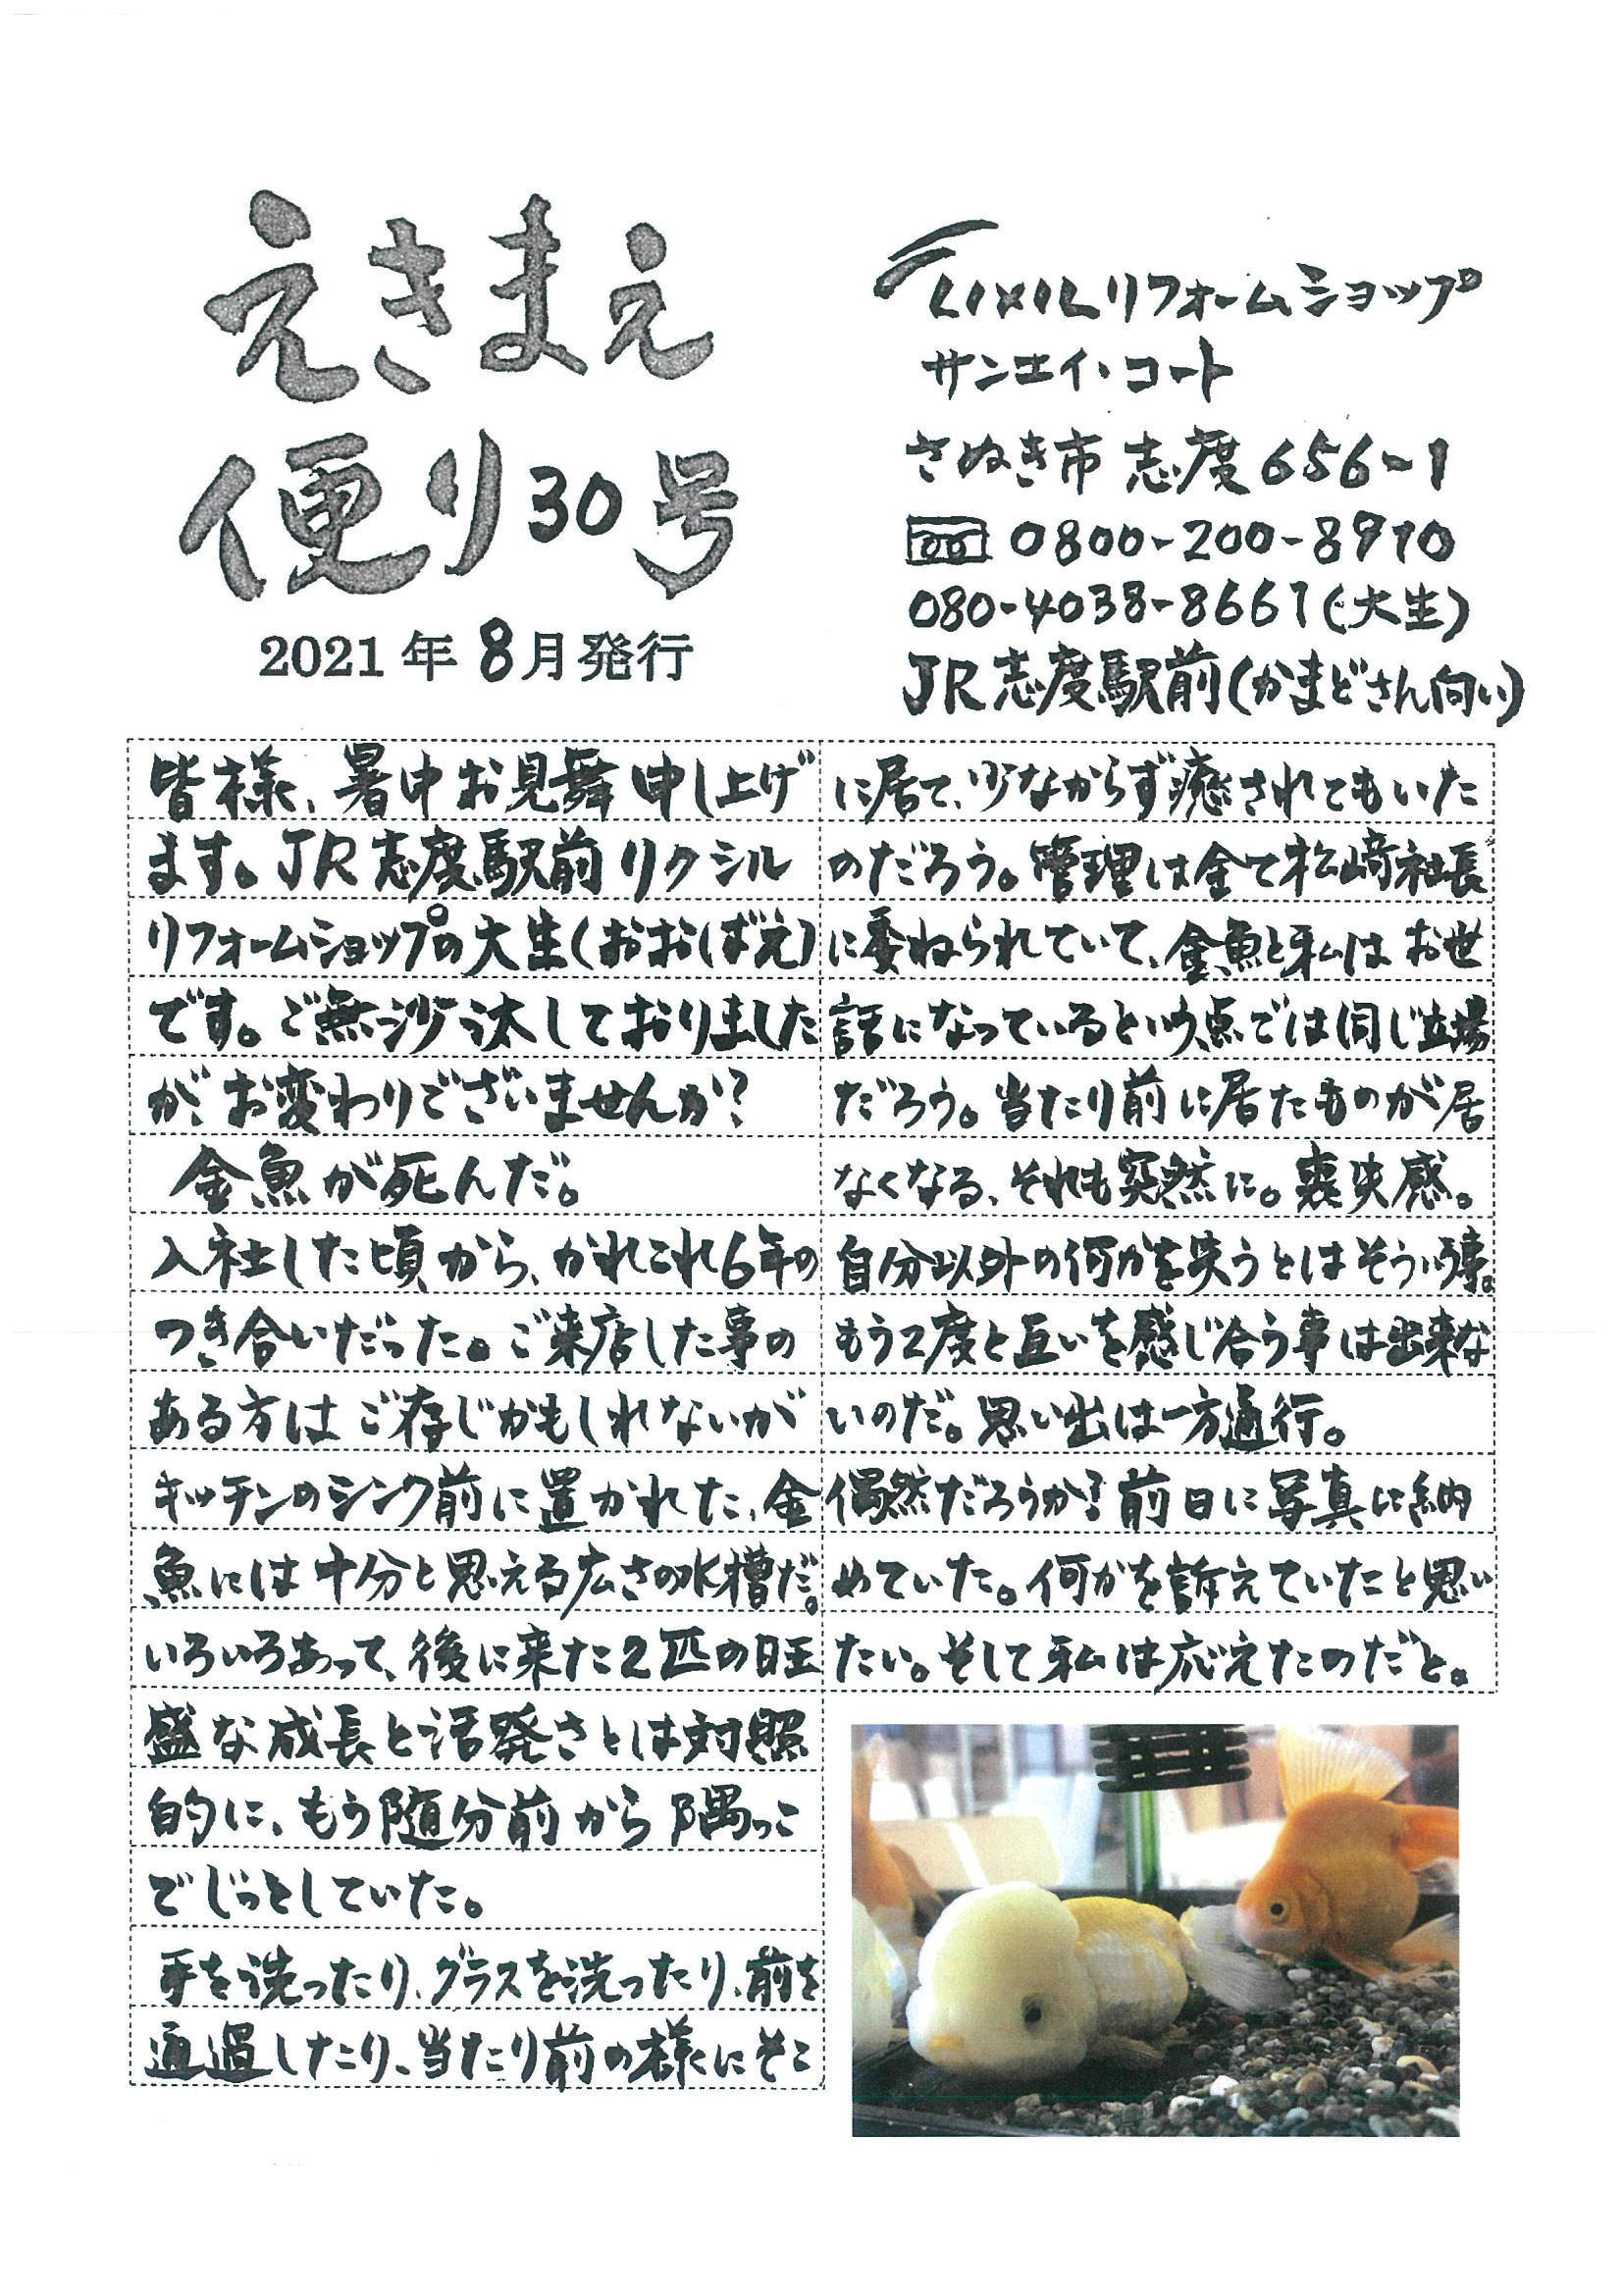 えきまえ
便り30号
2021年8月発行
LIXILリフォームショップ
サンエイ・コート
さぬき市志度656-1
0800-200-8910
080-4038-8661(大生)
JR志度駅前(かまどさん向い)
皆様、暑中お見舞申し上げ
ます。JR志度駅前リクシル
リフォームショップの大生(おおばえ)
です。ご無沙汰しておりました
が、お変わりございませんか?
金魚が死んだ。
入社した頃から、かれこれ6年の
つき合いだった。ご来店した事の
ある方はご存じかもしれないが
キッチンのシンク前に置かれた、金
魚には十分と思える広さの水槽だ。
いろいろあって、後に来た2匹の旺
盛な成長と活発さとは対照
的に、もう随分前から隅っこ
でじっとしていた。
手を洗ったり、グラスを洗ったり、前を
通過したり、当たり前の様にそこ
に居て、少なからず癒されてもいた
のだろう。管理は全て松﨑社長
に委ねられていて、金魚と私はお世
話になっているという点では同じ立場
だろう。当たり前に居たものが居
なくなる、それも突然に。喪失感。
自分以外の何かを失うとはそういう事。
もう2度と互いを感じ合う事は出来な
いのだ。思い出は一方通行。
偶然だろうか?前日に写真に納
めていた。何かを訴えていたと思い
たい。そして私は応えたのだと。